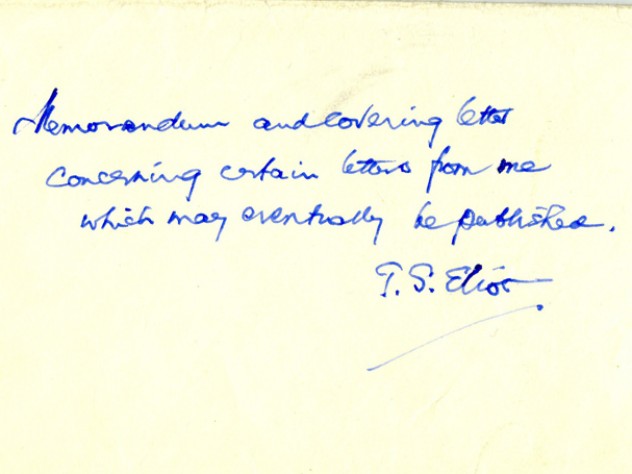 Memorandum and covering letter
concerning certain letters from me
which may eventually be published.
T. S. Eliot